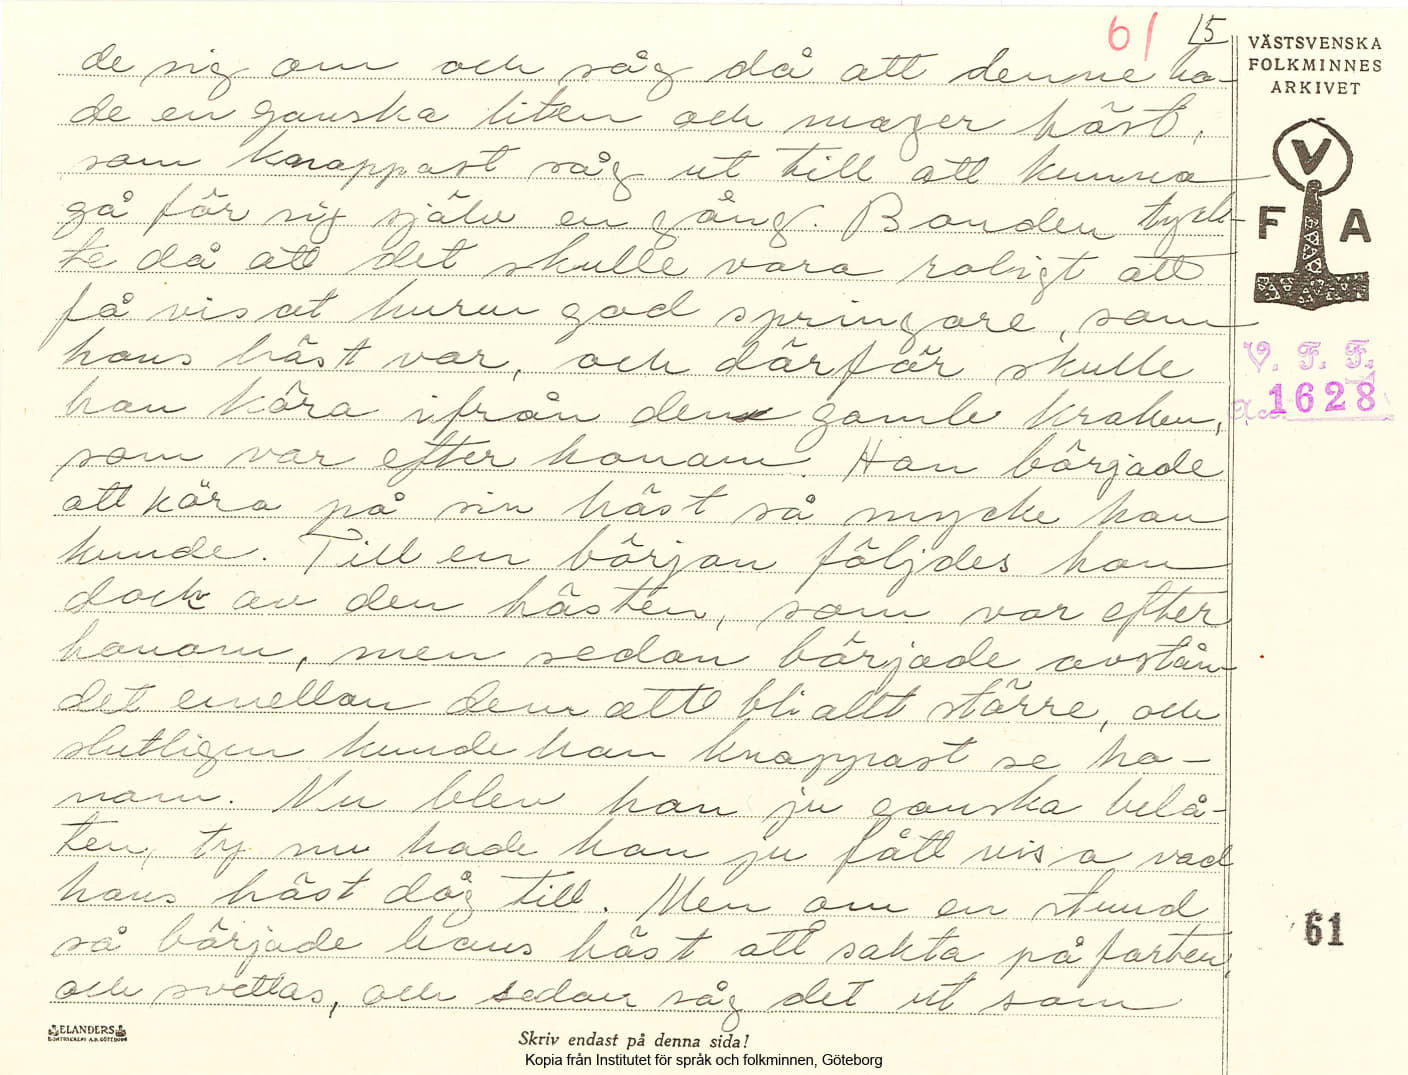 61 15
de sig om och såg då att denne ha-
de en ganska liten och mager häst,
som knappast såg ut till att kunna
gå för sig själv en gång. Bonden tyck-
te då att det skulle vara roligt att
få visat huru god springare, som
hans häst var, och därför skulle
han köra ifrån den gamle kraken,
som var efter honom. Han började
att köra på sin häst så mycke han
kunde. Till en början följdes han
dock av den hästen, som var efter
honom, men sedan började avstån-
det emellan dem att bli allt större, och
slutligen kunde han knappast se ho-
nom. Nu blev han ju ganska belå-
ten, ty nu hade han ju fått visa vad
hans häst dög till. Men om en stund
så började hans häst att sakta på farten,
och svettas, och sedan såg det ut som
VÄSTSVENSKA
FOLKMINNES
ARKIVET
V
F A
V. F. F.
Acc. 1628
61
ELANDERS
Skriv endast på denna sida!
Kopia från Institutet för språk och folkminnen, Göteborg